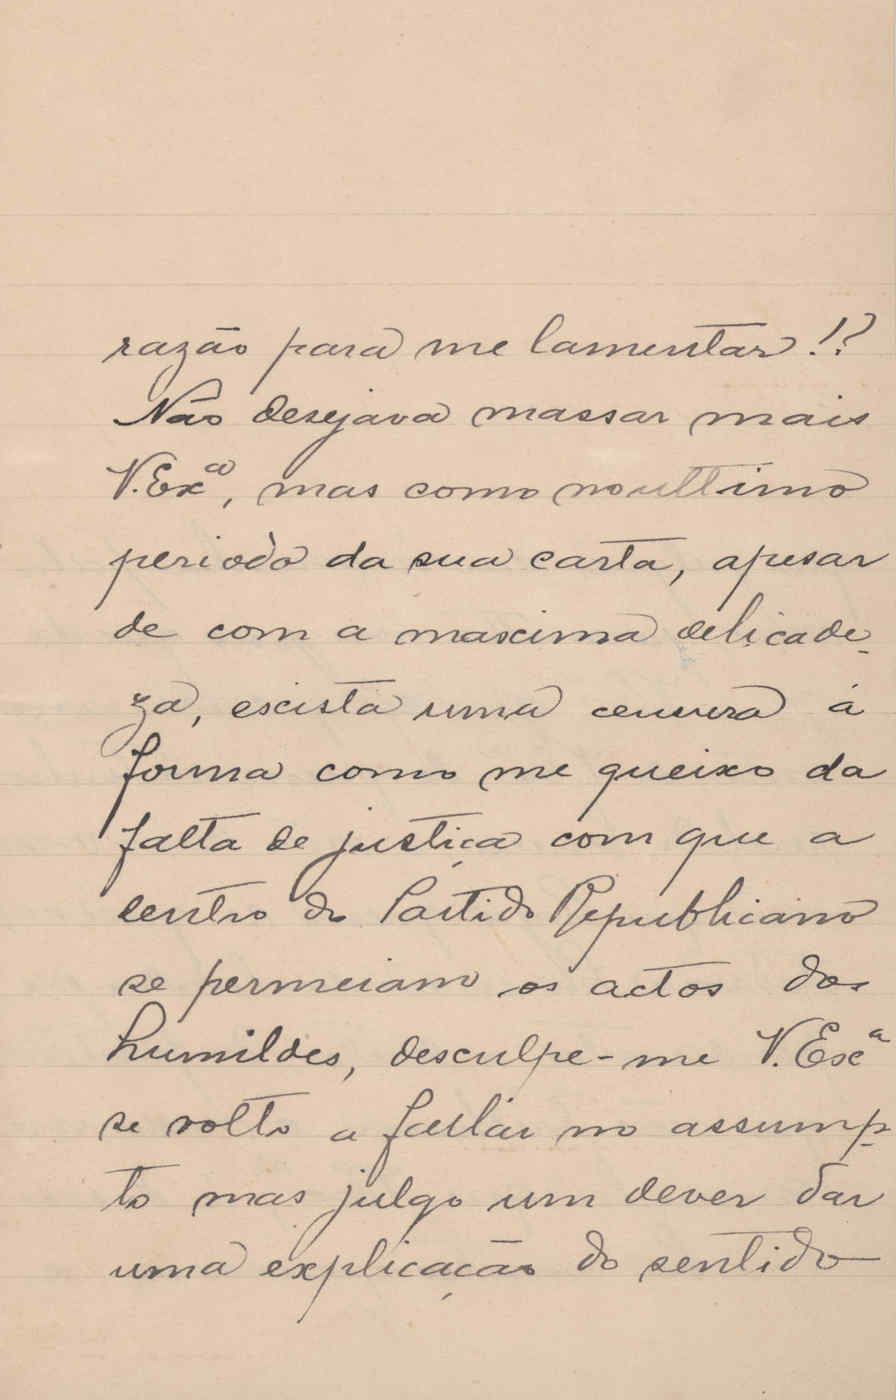 razão para me lamentar!?
Não desejava massar mais
V. Exª, mas como no ultimo
periodo da sua carta, apesar
de com a maxima delicade-
za, exista uma censura á
forma como me queixo da
falta de justiça com que a
centro do Partido Republicano
se permeiam os actos dos
humildes, desculpe-me V. Exª
se volto a fallar no assump-
to mas julgo um dever dar
uma explicação do sentido